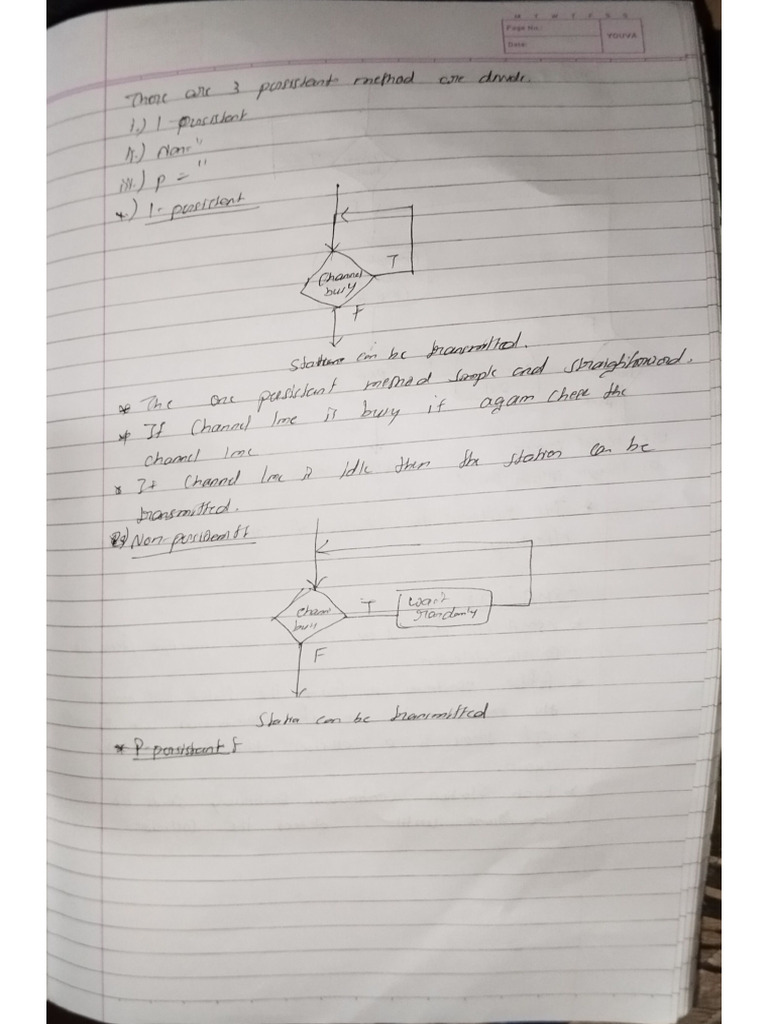 M T W T F S S
Page No.:
Date:
YOUVA
There are 3 persistent method are divide.
i.) 1-persistent
ii.) Non-"
iii.) p = "
*.) 1-persistent
Channel
busy
T
F
Station can be transmitted.
* The one persistent method simple and straightforward.
* If Channel line is busy it again check the
channel line
* If Channel line is idle then the station can be
transmitted.
Non-persistent
Channel
busy
T
wait
randomly
F
Station can be transmitted
* P-persistent